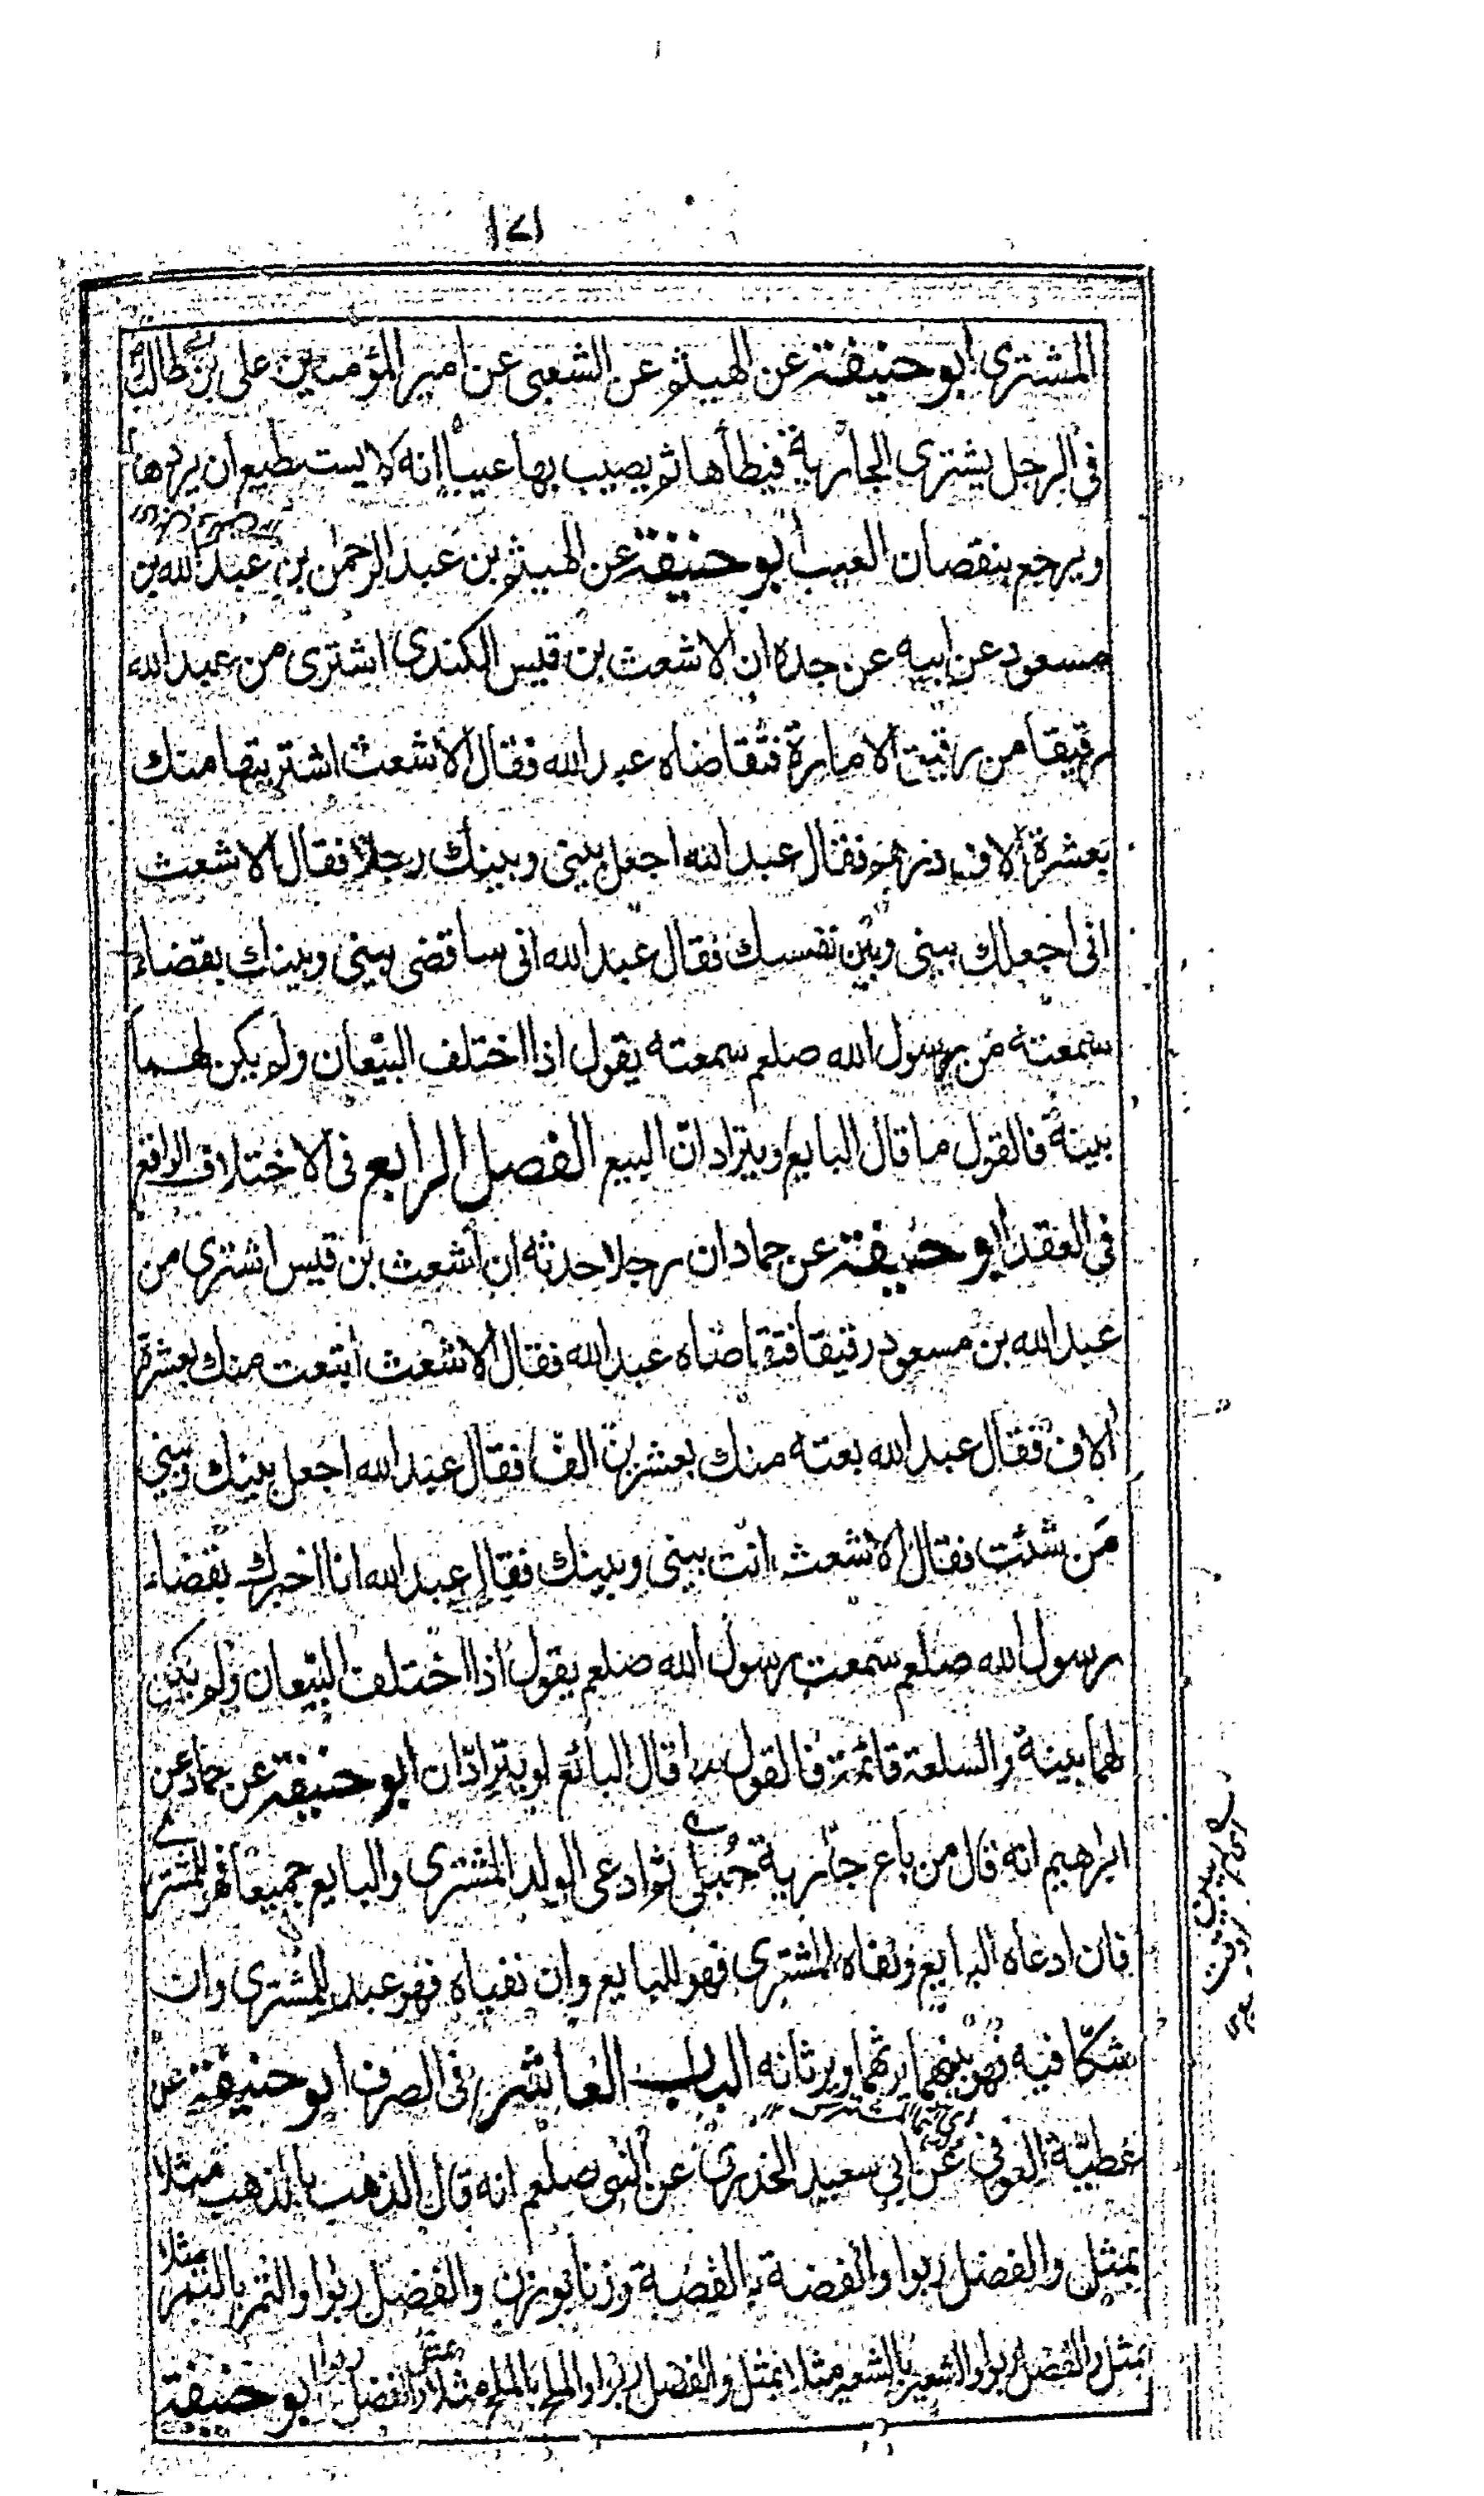 ١٧١
المشترى ابو حنيفة عن الهيثم عن الشعبى عن امير المؤمنين على بن ابى طالب
فى الرجل يشترى الجارية فيطأها ثم يصيب بها عيبا انه لا يستطيع ان يردها
ويرجع بنقصان العيب ابو حنيفة عن الهيثم بن عبد الرحمن بن عبد الله بن
مسعود عن ابيه عن جده ان الاشعث بن قيس الكندى اشترى من عبد الله
رقيقا من رقيق الامارة فتقاضاه عبد الله فقال الاشعث اشتريتها منك
بعشرة الاف درهم فقال عبد الله اجعل بينى وبينك رجلا فقال الاشعث
انى اجعلك بينى وبين نفسك فقال عبد الله انى ساقضى بينى وبينك بقضاء
سمعته من رسول الله صلعم سمعته يقول اذا اختلف البيّعان ولم يكن لهما
بينة فالقول ما قال البايع ويترادان البيع الفصل الرابع فى الاختلاف الواقع
فى العقد ابو حنيفة عن حماد ان رجلا حدثه ان اشعث بن قيس اشترى من
عبد الله بن مسعود رقيقا فتقاضاه عبد الله فقال الاشعث ابتعت منك بعشرة
الاف فقال عبد الله بعته منك بعشرين الفا فقال عبد الله اجعل بينك وبينى
من شئت فقال الاشعث انت بينى وبينك فقال عبد الله انا اخبرك بقضاء
رسول الله صلعم سمعت رسول الله صلعم يقول اذا اختلف البيّعان ولم يكن
لهما بينة والسلعة قائمة فالقول ما قال البائع او يترادّان ابو حنيفة عن حماد عن
ابراهيم انه قال من باع جارية حبلى ثم ادعى الولد المشترى والبايع جميعا فهو للمشترى
فان ادعاه البايع ونفاه المشترى فهو للبايع وان نفياه فهو عبد للمشترى وان
شكّا فيه فهو بينهما يرثهما ويرثانه الباب العاشر فى الصرف ابو حنيفة عن
عطيّة العوفى عن ابى سعيد الخدرى عن النبى صلعم انه قال الذهب بالذهب مثلا
بمثل والفضل ربوا والفضة بالفضة وزنا بوزن والفضل ربوا والتمر بالتمر مثلا
بمثل والفضل ربوا والشعير بالشعير مثلا بمثل والفضل ربوا والملح بالملح مثلا بمثل والفضل ربوا ابو حنيفة